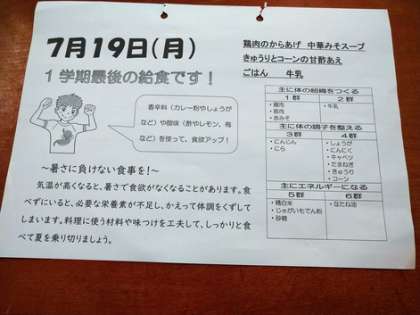 7月19日(月)
1学期最後の給食です!
香辛料(カレー粉やしょうが
など)や酸味(酢やレモン、梅
など)を使って、食欲アップ!
~暑さに負けない食事を!~
気温が高くなると、暑さで食欲がなくなることがあります。食
べずにいると、必要な栄養素が不足し、かえって体調をくずして
しまいます。料理に使う材料や味つけを工夫して、しっかりと食
べて夏を乗り切りましょう。
鶏肉のからあげ 中華みそスープ
きゅうりとコーンの甘酢あえ
ごはん 牛乳
主に体の組織をつくる
1群 2群
・鶏肉 ・牛乳
・豚肉
・赤みそ
主に体の調子を整える
3群 4群
・にんじん ・しょうが
・にら ・にんにく
・キャベツ
・たまねぎ
・きゅうり
・コーン
主にエネルギーになる
5群 6群
・精白米 ・なたね油
・じゃがいもでん粉
・砂糖